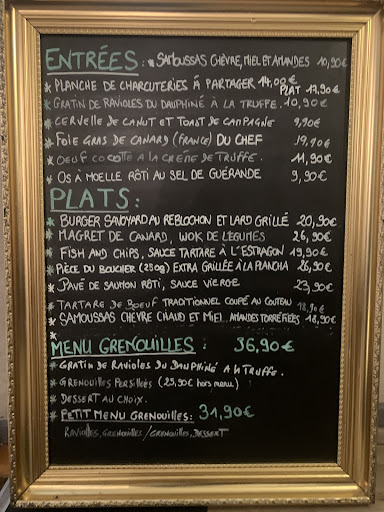 ENTRÉES: * SAMOUSSAS CHÈVRE, MIEL ET AMANDES 10,90€
* PLANCHE DE CHARCUTERIES À PARTAGER 14,00€
PLAT 17,90€
* GRATIN DE RAVIOLES DU DAUPHINÉ À LA TRUFFE. 10,90€
* CERVELLE DE CANUT ET TOAST DE CAMPAGNE 9,90€
* FOIE GRAS DE CANARD (FRANCE) DU CHEF 19,90€
* OEUF COCOTTE A LA CRÈME DE TRUFFE. 11,90€
* OS À MOELLE RÔTI AU SEL DE GUÉRANDE 9,90€
PLATS:
* BURGER SAVOYARD AU REBLOCHON ET LARD GRILLÉ 20,90€
* MAGRET DE CANARD, WOK DE LÉGUMES 26,90€
* FISH AND CHIPS, SAUCE TARTARE À L'ESTRAGON 19,90€
* PIÈCE DU BOUCHER (250g) EXTRA GRILLÉE À LA PLANCHA 26,90€
* PAVÉ DE SAUMON RÔTI, SAUCE VIERGE 23,90€
* TARTARE DE BOEUF TRADITIONNEL COUPÉ AU COUTEAU 18,90€
* SAMOUSSAS CHÈVRE CHAUD ET MIEL. AMANDES TORRÉFIÉES 18,90€
*
MENU GRENOUILLES: 36,90€
* GRATIN DE RAVIOLES DU DAUPHINÉ A LA TRUFFE.
* GRENOUILLES PERSILLÉES (25,90€ hors menu)
* DESSERT AU CHOIX.
* PETIT MENU GRENOUILLES: 31,90€
RAVIOLES, GRENOUILLES / GRENOUILLES, DESSERT